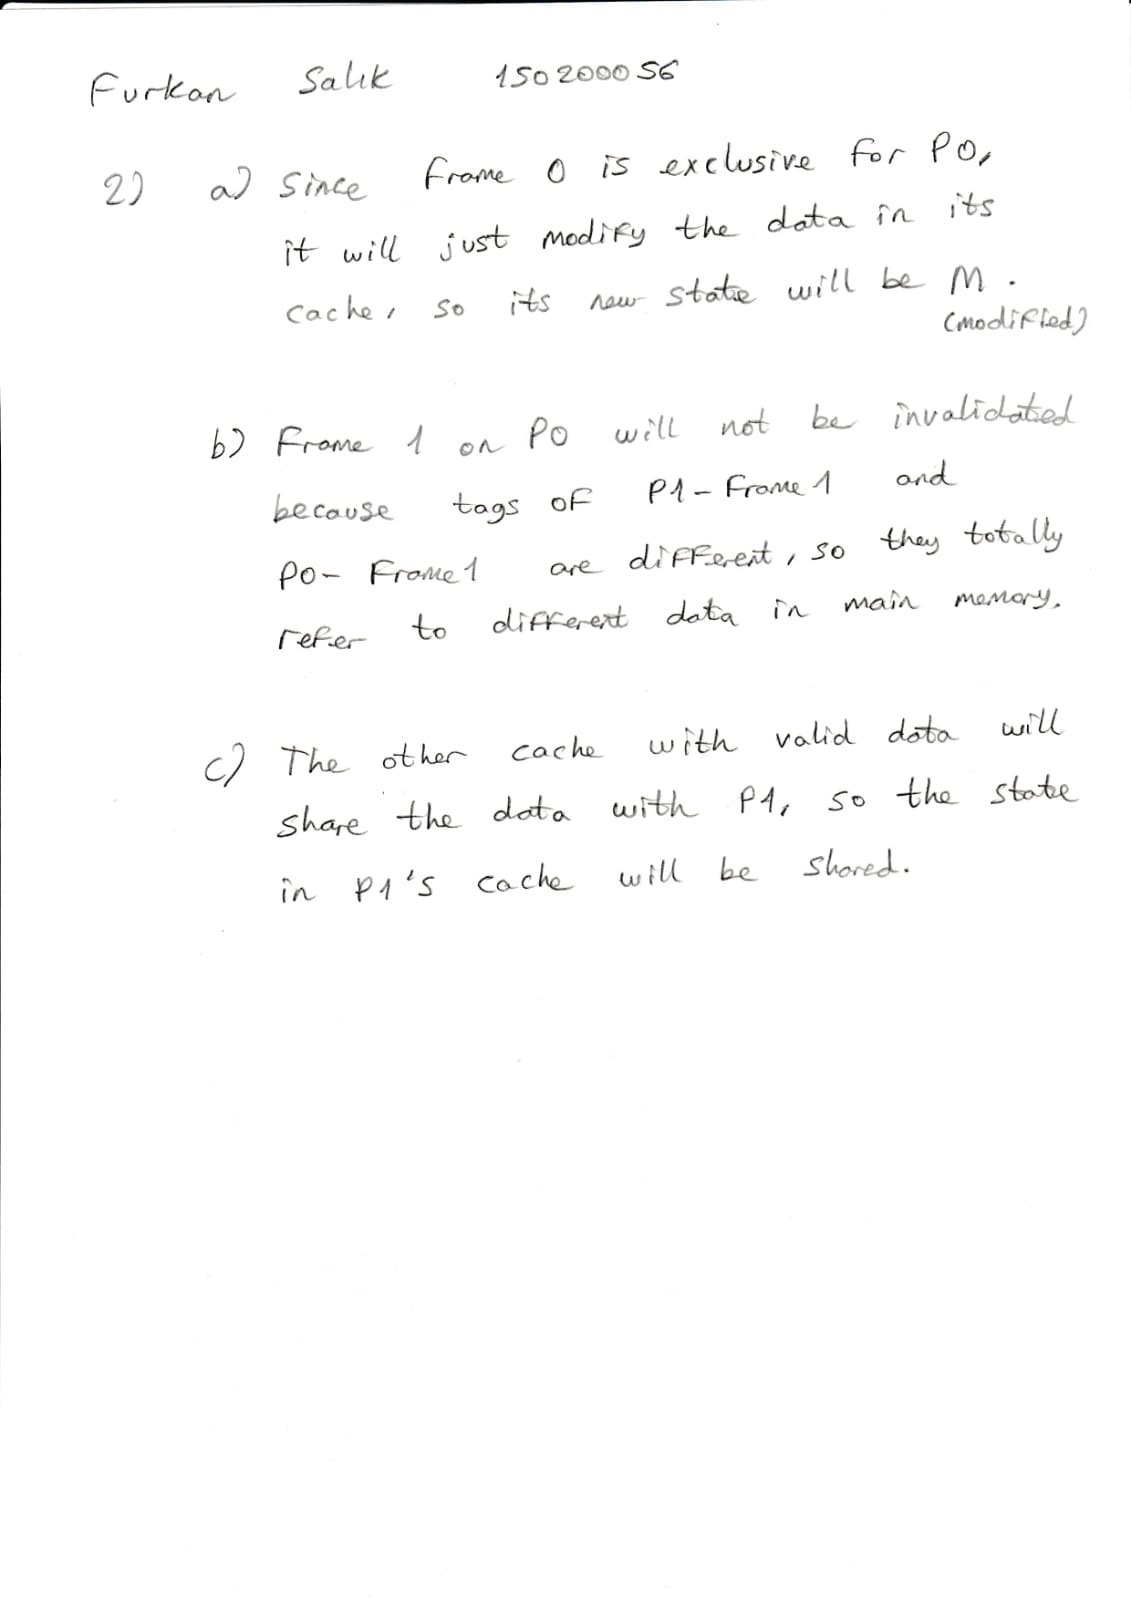 Furkan Salık 150200056
2) a) Since frame 0 is exclusive for P0,
it will just modify the data in its
cache, so its new state will be M.
(modified)
b) Frame 1 on P0 will not be invalidated
because tags of P1-Frame1 and
P0-Frame1 are different, so they totally
refer to different data in main memory.
c) The other cache with valid data will
share the data with P1, so the state
in P1's cache will be shared.